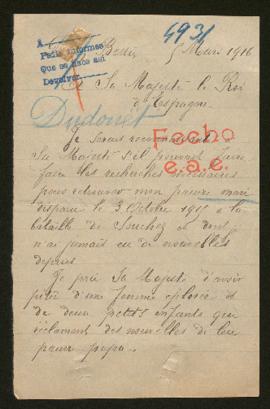 4931
A
Pedir informes
Que se hace así
Devolver
5 Mars 1916
A Sa Majesté le Roi
d'Espagne.
Dudouet
Fecho
e.a.e.
Je serais reconnaissante à
Sa Majesté s'il pouvait faire
faire des recherches nécessaires
pour retrouver mon pauvre mari
disparu le 3 Octobre 1915 à la
bataille de Souchez et dont
n'ai jamais eu de nouvelles
depuis.
Je prie Sa Majesté d'avoir
pitié d'une femme éplorée et
de deux petits enfants qui
réclament des nouvelles de leur
pauvre papa.